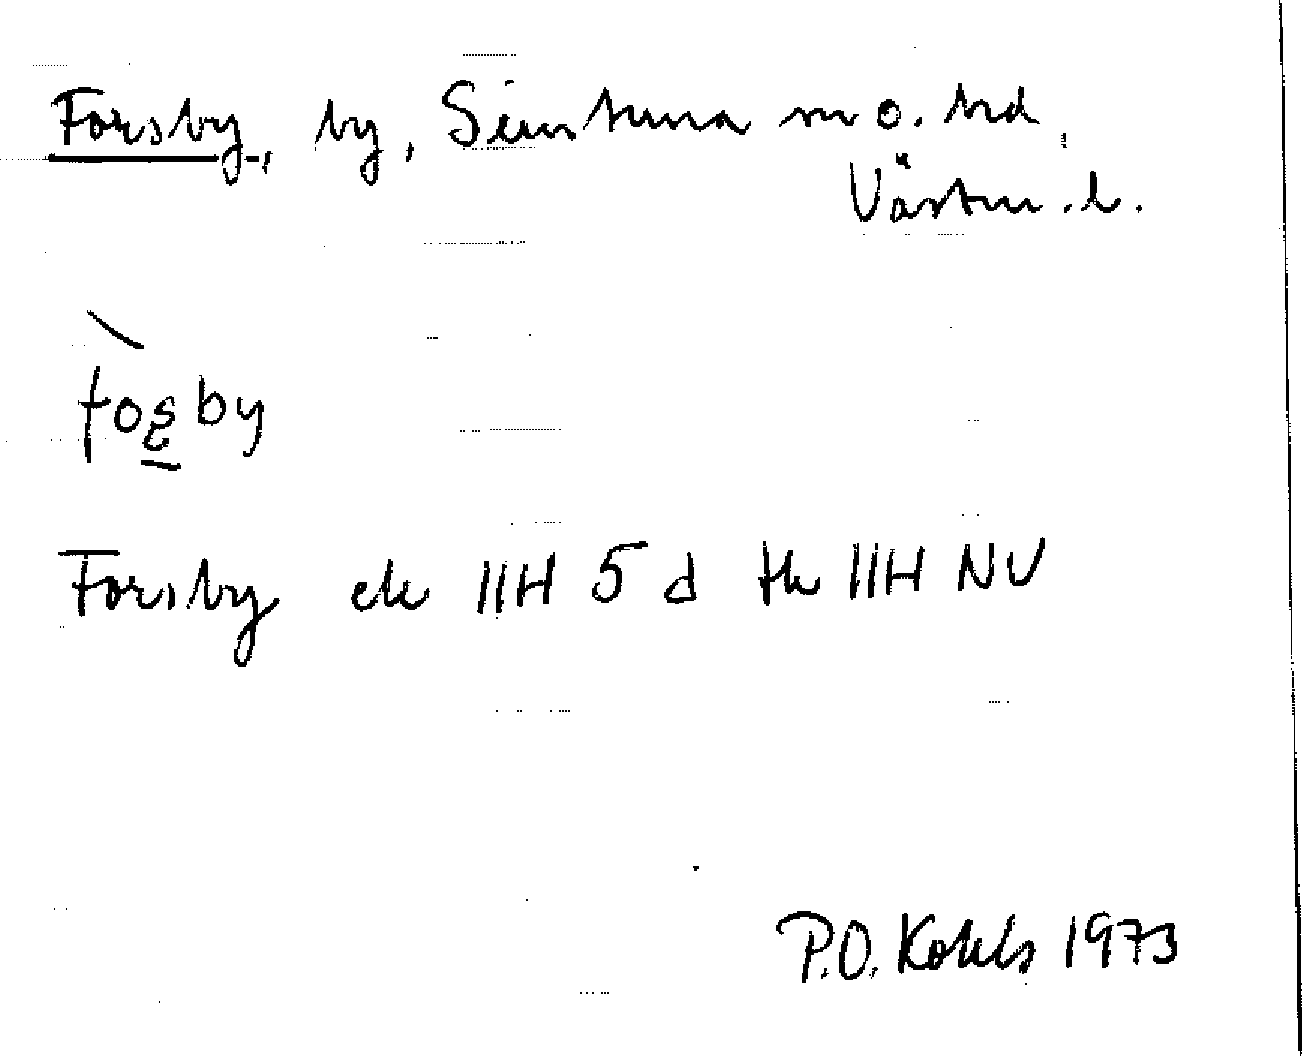 Forsby, by, Simtuna sn o. hd,
Västm. l.
fosby
Forsby ek 11H 5 d tk 11H NV
P.O. Kohls 1973